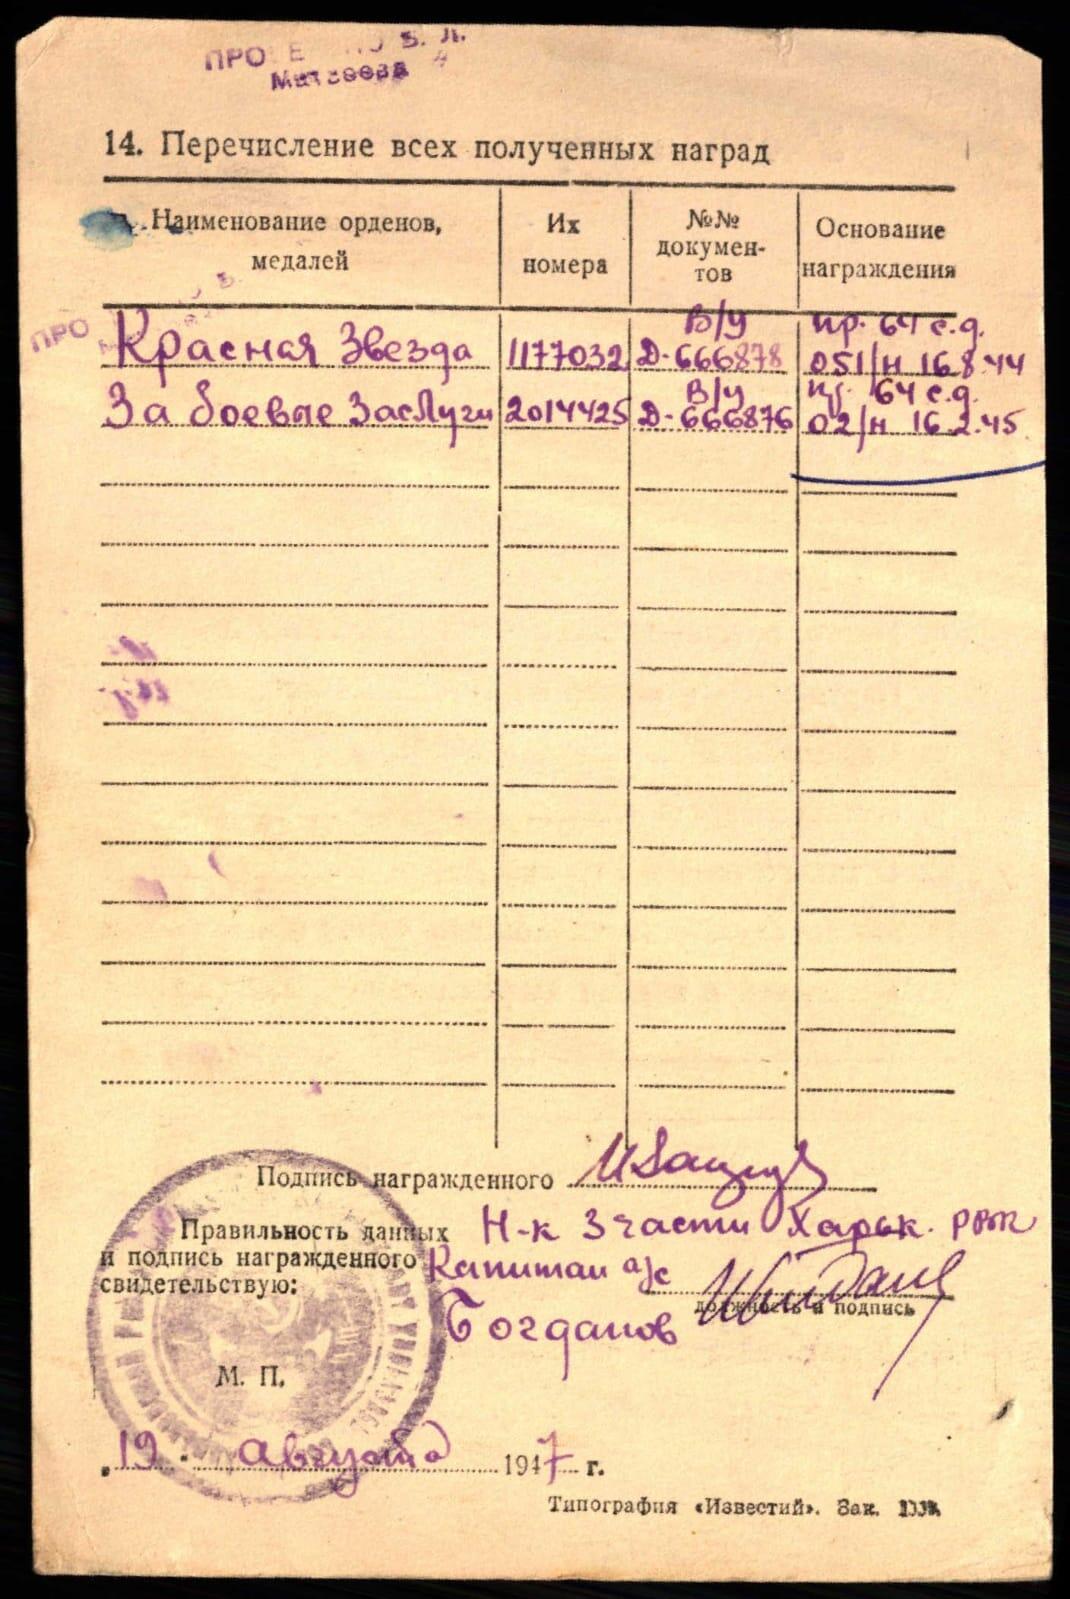 Матвеева
14. Перечисление всех полученных наград
Наименование орденов, медалей
Их номера
№№ документов
Основание награждения
Красная Звезда 1177032 В/у Д-666878 пр. 64 с.д. 051/н 16.8.44
За боевые заслуги 2014425 В/у Д-666876 пр. 64 с.д. 02/н 16.2.45
Подпись награжденного
Правильность данных Н-к 3 части Харьк. РВК
и подпись награжденного Капитан а/с
свидетельствую:
должность и подпись
Богданов
М. П.
„19" Августа 1947 г.
Типография «Известий». Зак.